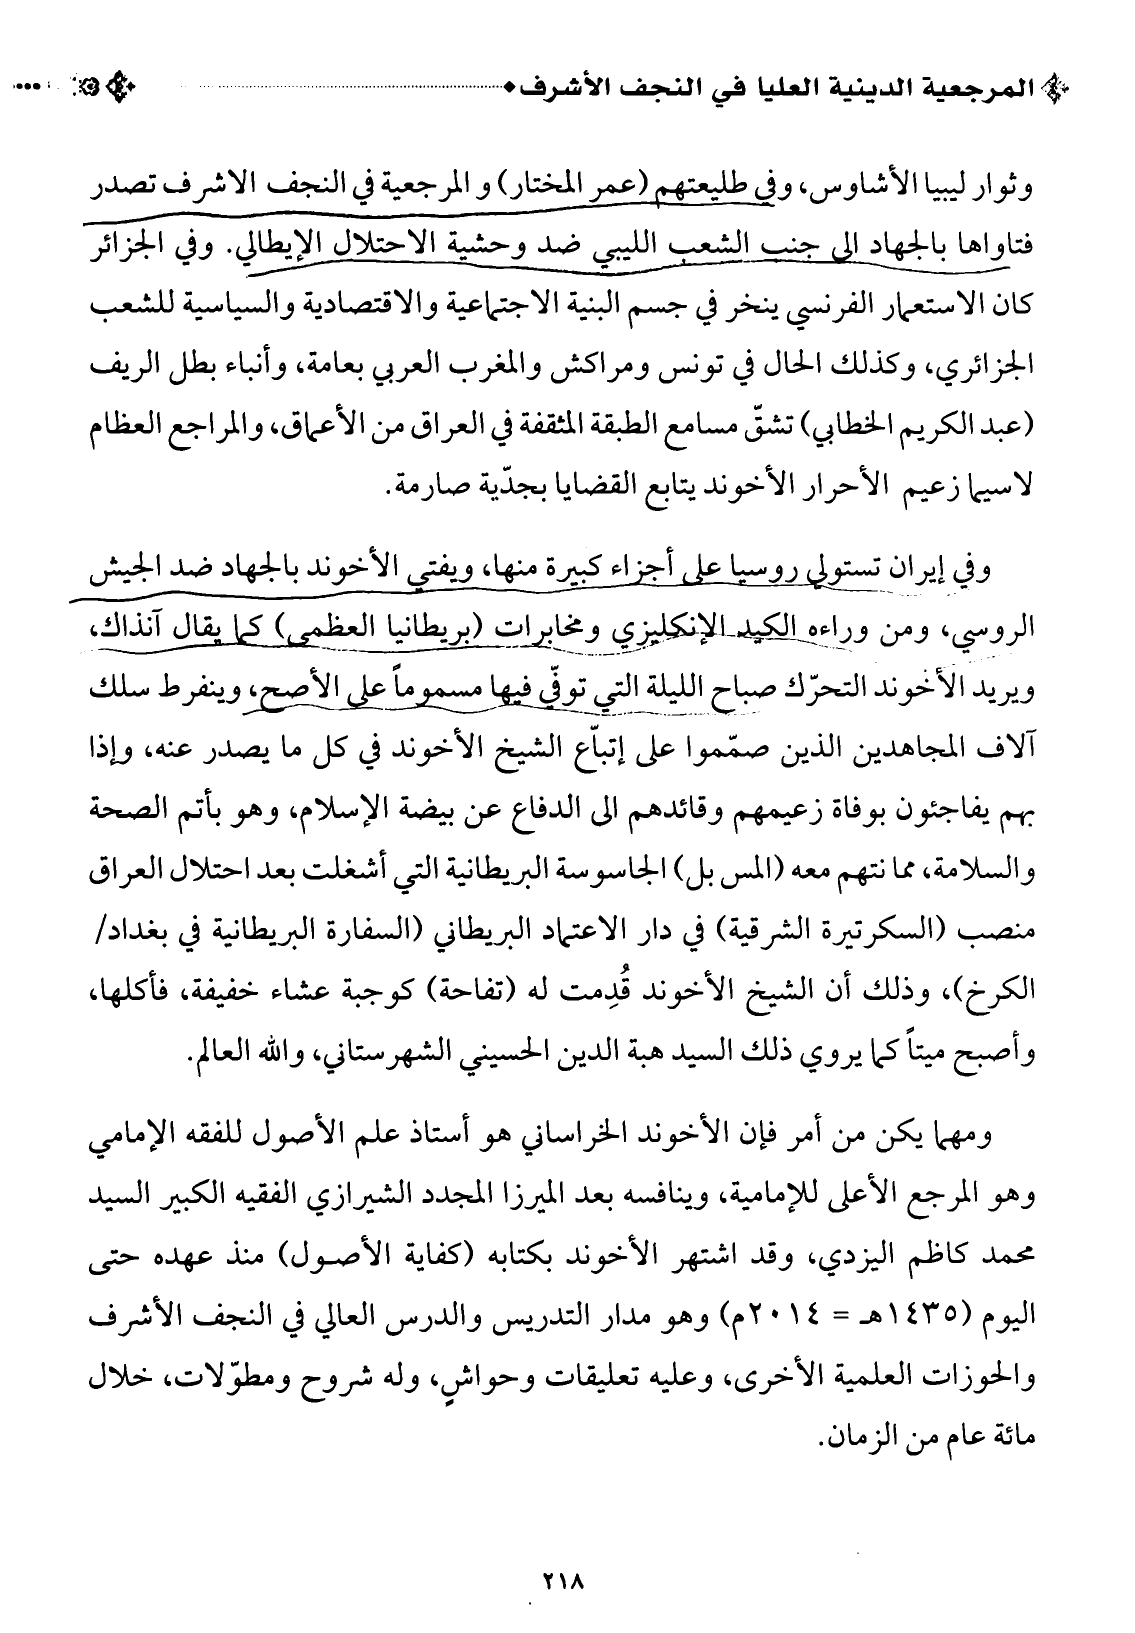 المرجعية الدينية العليا في النجف الأشرف
وثوار ليبيا الأشاوس، وفي طليعتهم (عمر المختار) و المرجعية في النجف الاشرف تصدر
فتاواها بالجهاد الى جنب الشعب الليبي ضد وحشية الاحتلال الإيطالي. وفي الجزائر
كان الاستعمار الفرنسي ينخر في جسم البنية الاجتماعية والاقتصادية والسياسية للشعب
الجزائري، وكذلك الحال في تونس ومراكش والمغرب العربي بعامة، وأنباء بطل الريف
(عبد الكريم الخطابي) تشقّ مسامع الطبقة المثقفة في العراق من الأعماق، والمراجع العظام
لاسيما زعيم الأحرار الأخوند يتابع القضايا بجدّية صارمة.
وفي إيران تستولي روسيا على أجزاء كبيرة منها، ويفتي الأخوند بالجهاد ضد الجيش
الروسي، ومن وراءه الكيد الإنكليزي ومخابرات (بريطانيا العظمى) كما يقال آنذاك،
ويريد الأخوند التحرّك صباح الليلة التي توفّي فيها مسموماً على الأصح، وينفرط سلك
آلاف المجاهدين الذين صمّموا على إتبّاع الشيخ الأخوند في كل ما يصدر عنه، وإذا
بهم يفاجئون بوفاة زعيمهم وقائدهم الى الدفاع عن بيضة الإسلام، وهو بأتم الصحة
والسلامة، مما نتهم معه (المس بل) الجاسوسة البريطانية التي أشغلت بعد احتلال العراق
منصب (السكرتيرة الشرقية) في دار الاعتماد البريطاني (السفارة البريطانية في بغداد/
الكرخ)، وذلك أن الشيخ الأخوند قُدِمت له (تفاحة) كوجبة عشاء خفيفة، فأكلها،
وأصبح ميتاً كما يروي ذلك السيد هبة الدين الحسيني الشهرستاني، والله العالم.
ومهما يكن من أمر فإن الأخوند الخراساني هو أستاذ علم الأصول للفقه الإمامي
وهو المرجع الأعلى للإمامية، وينافسه بعد الميرزا المجدد الشيرازي الفقيه الكبير السيد
محمد كاظم اليزدي، وقد اشتهر الأخوند بكتابه (كفاية الأصول) منذ عهده حتى
اليوم (١٤٣٥هـ = ٢٠١٤م) وهو مدار التدريس والدرس العالي في النجف الأشرف
والحوزات العلمية الأخرى، وعليه تعليقات وحواشٍ، وله شروح ومطوّلات، خلال
مائة عام من الزمان.
٢١٨